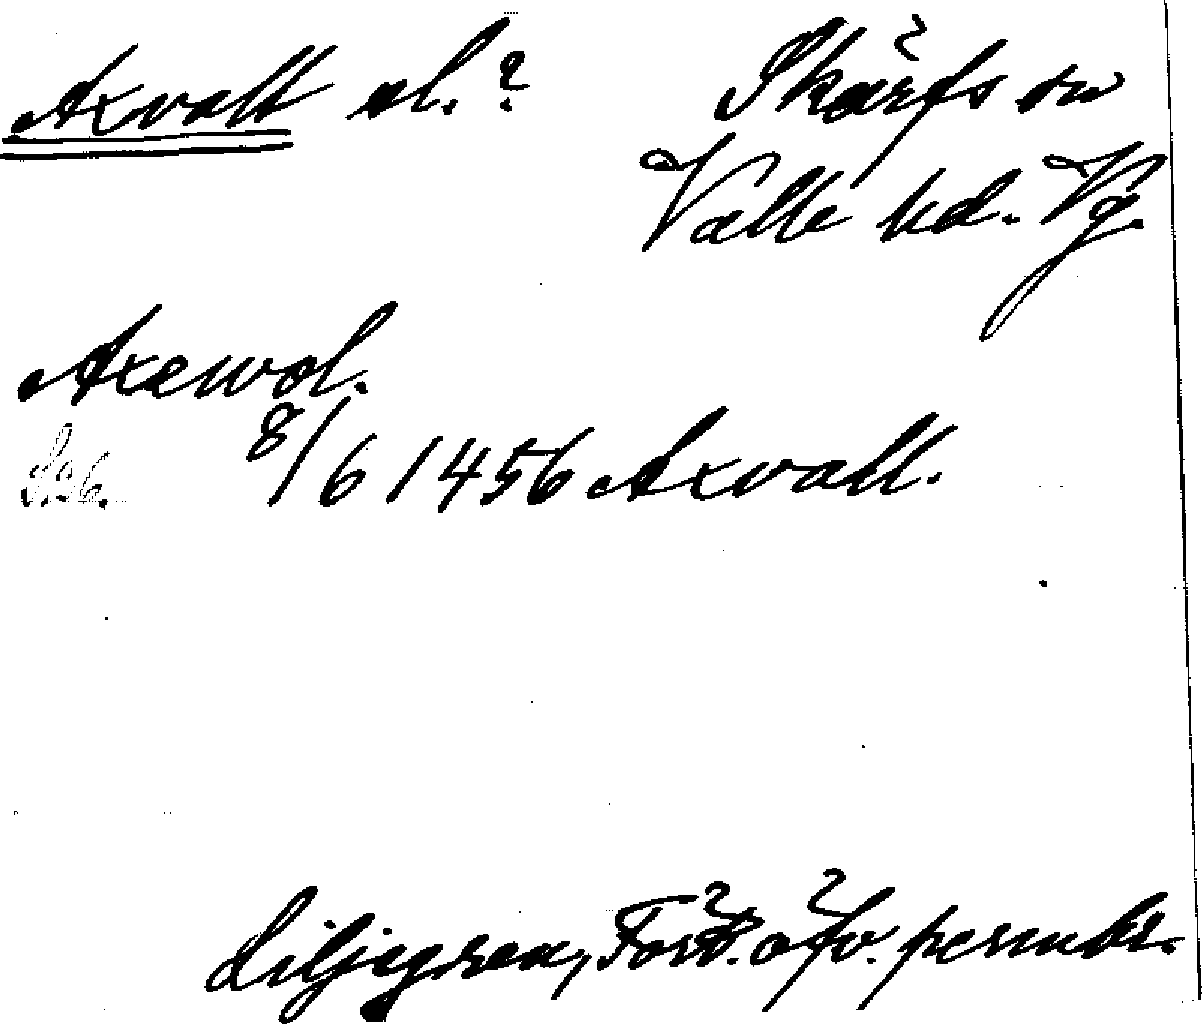 Axvall el.? Skärfs sn
Valle hd. Vg.
Axewol.
S. 96. 8/6 1456 Axvall.
Liljegren, Fört. öfv. permbr.